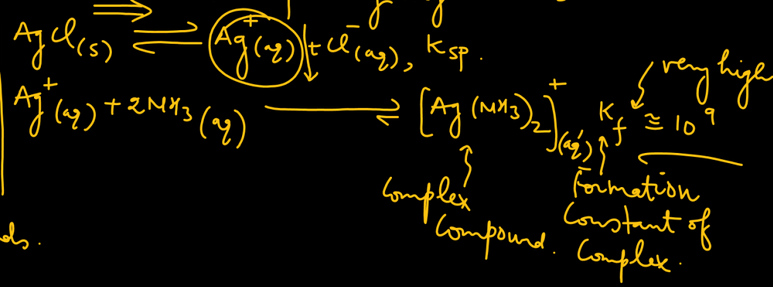 AgCl(s) ⇌ Ag⁺(aq) + Cl⁻(aq), Ksp.
very high
Ag⁺(aq) + 2NH₃(aq) ⇌ [Ag(NH₃)₂]⁺(aq), Kf ≅ 10⁹
Complex Compound.
Formation
Constant of
Complex.
ds.